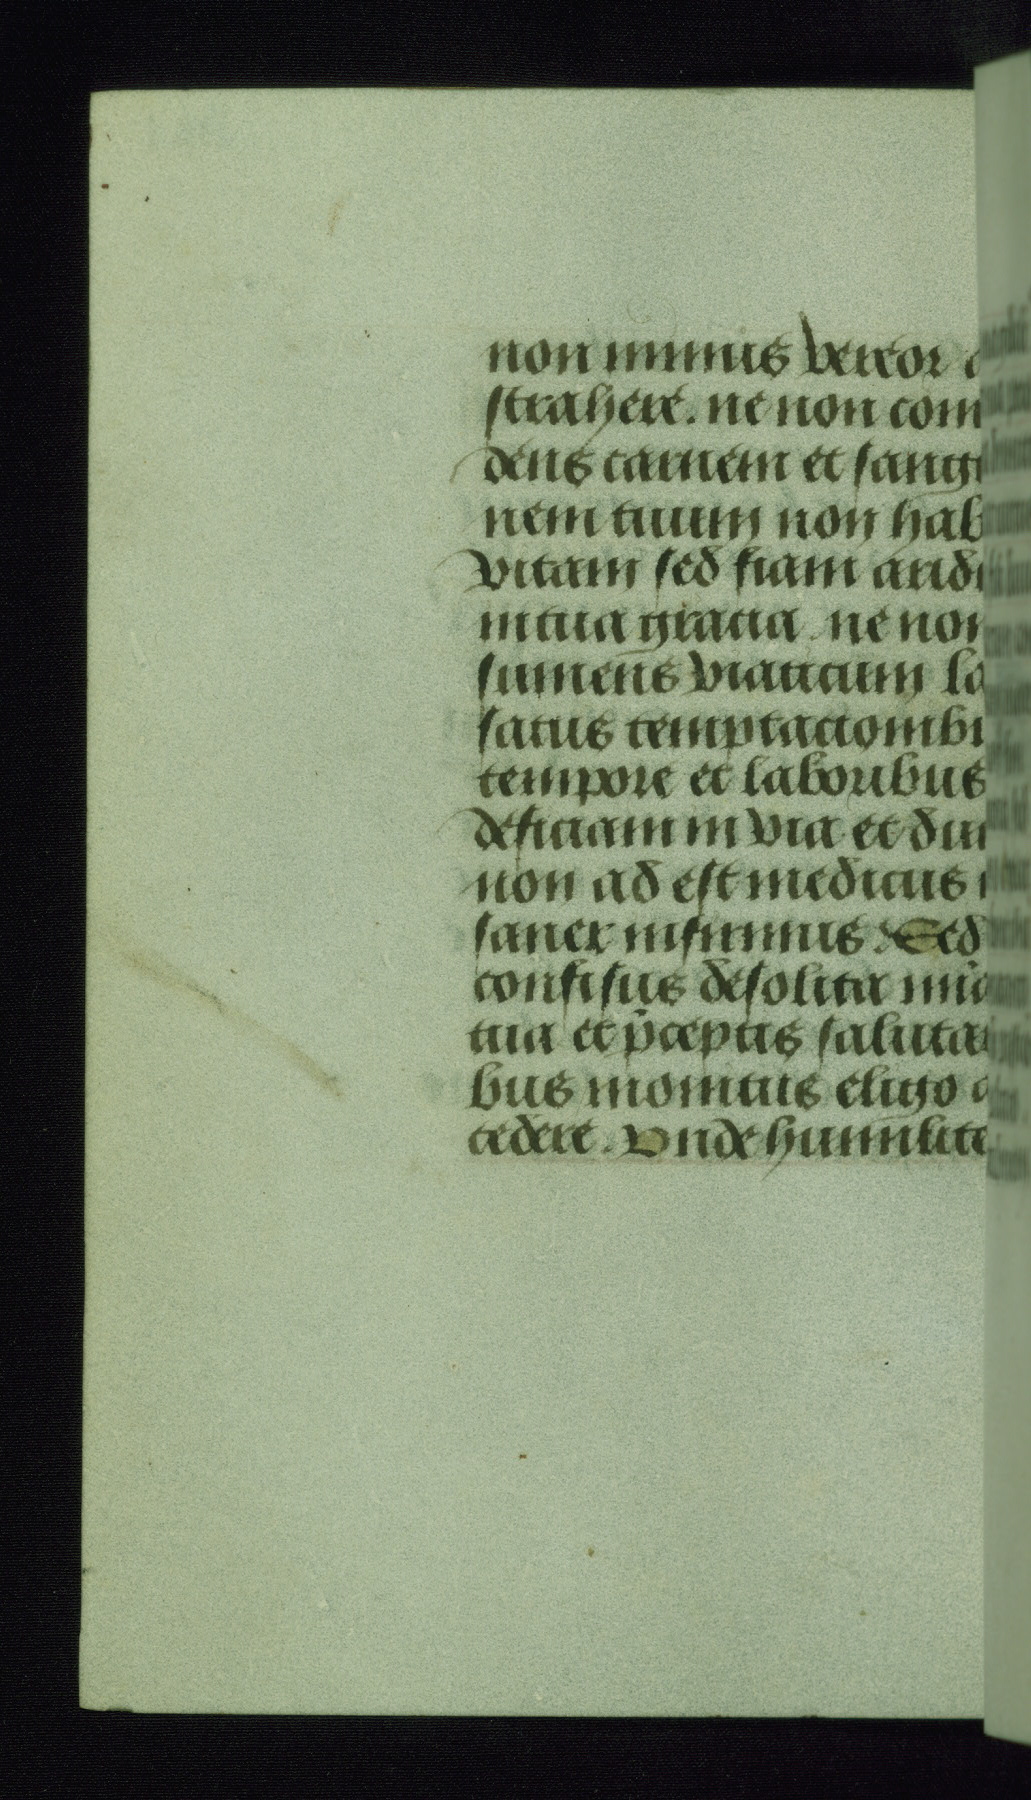 non minus vereor
strahere. ne non com
dens carnem et sangi
nem tuum non hab
vitam sed fiam arid
in tua gratia. ne non
sumens viaticum la
satus temptationibu
tempore et laboribus
deficiam in via et du
non ad est medicus
saner infirmus. Sed
confisus de solita mi͞a
tua et p̄ceptis saluta
bus monitus eligo
cedere. Unde humilite